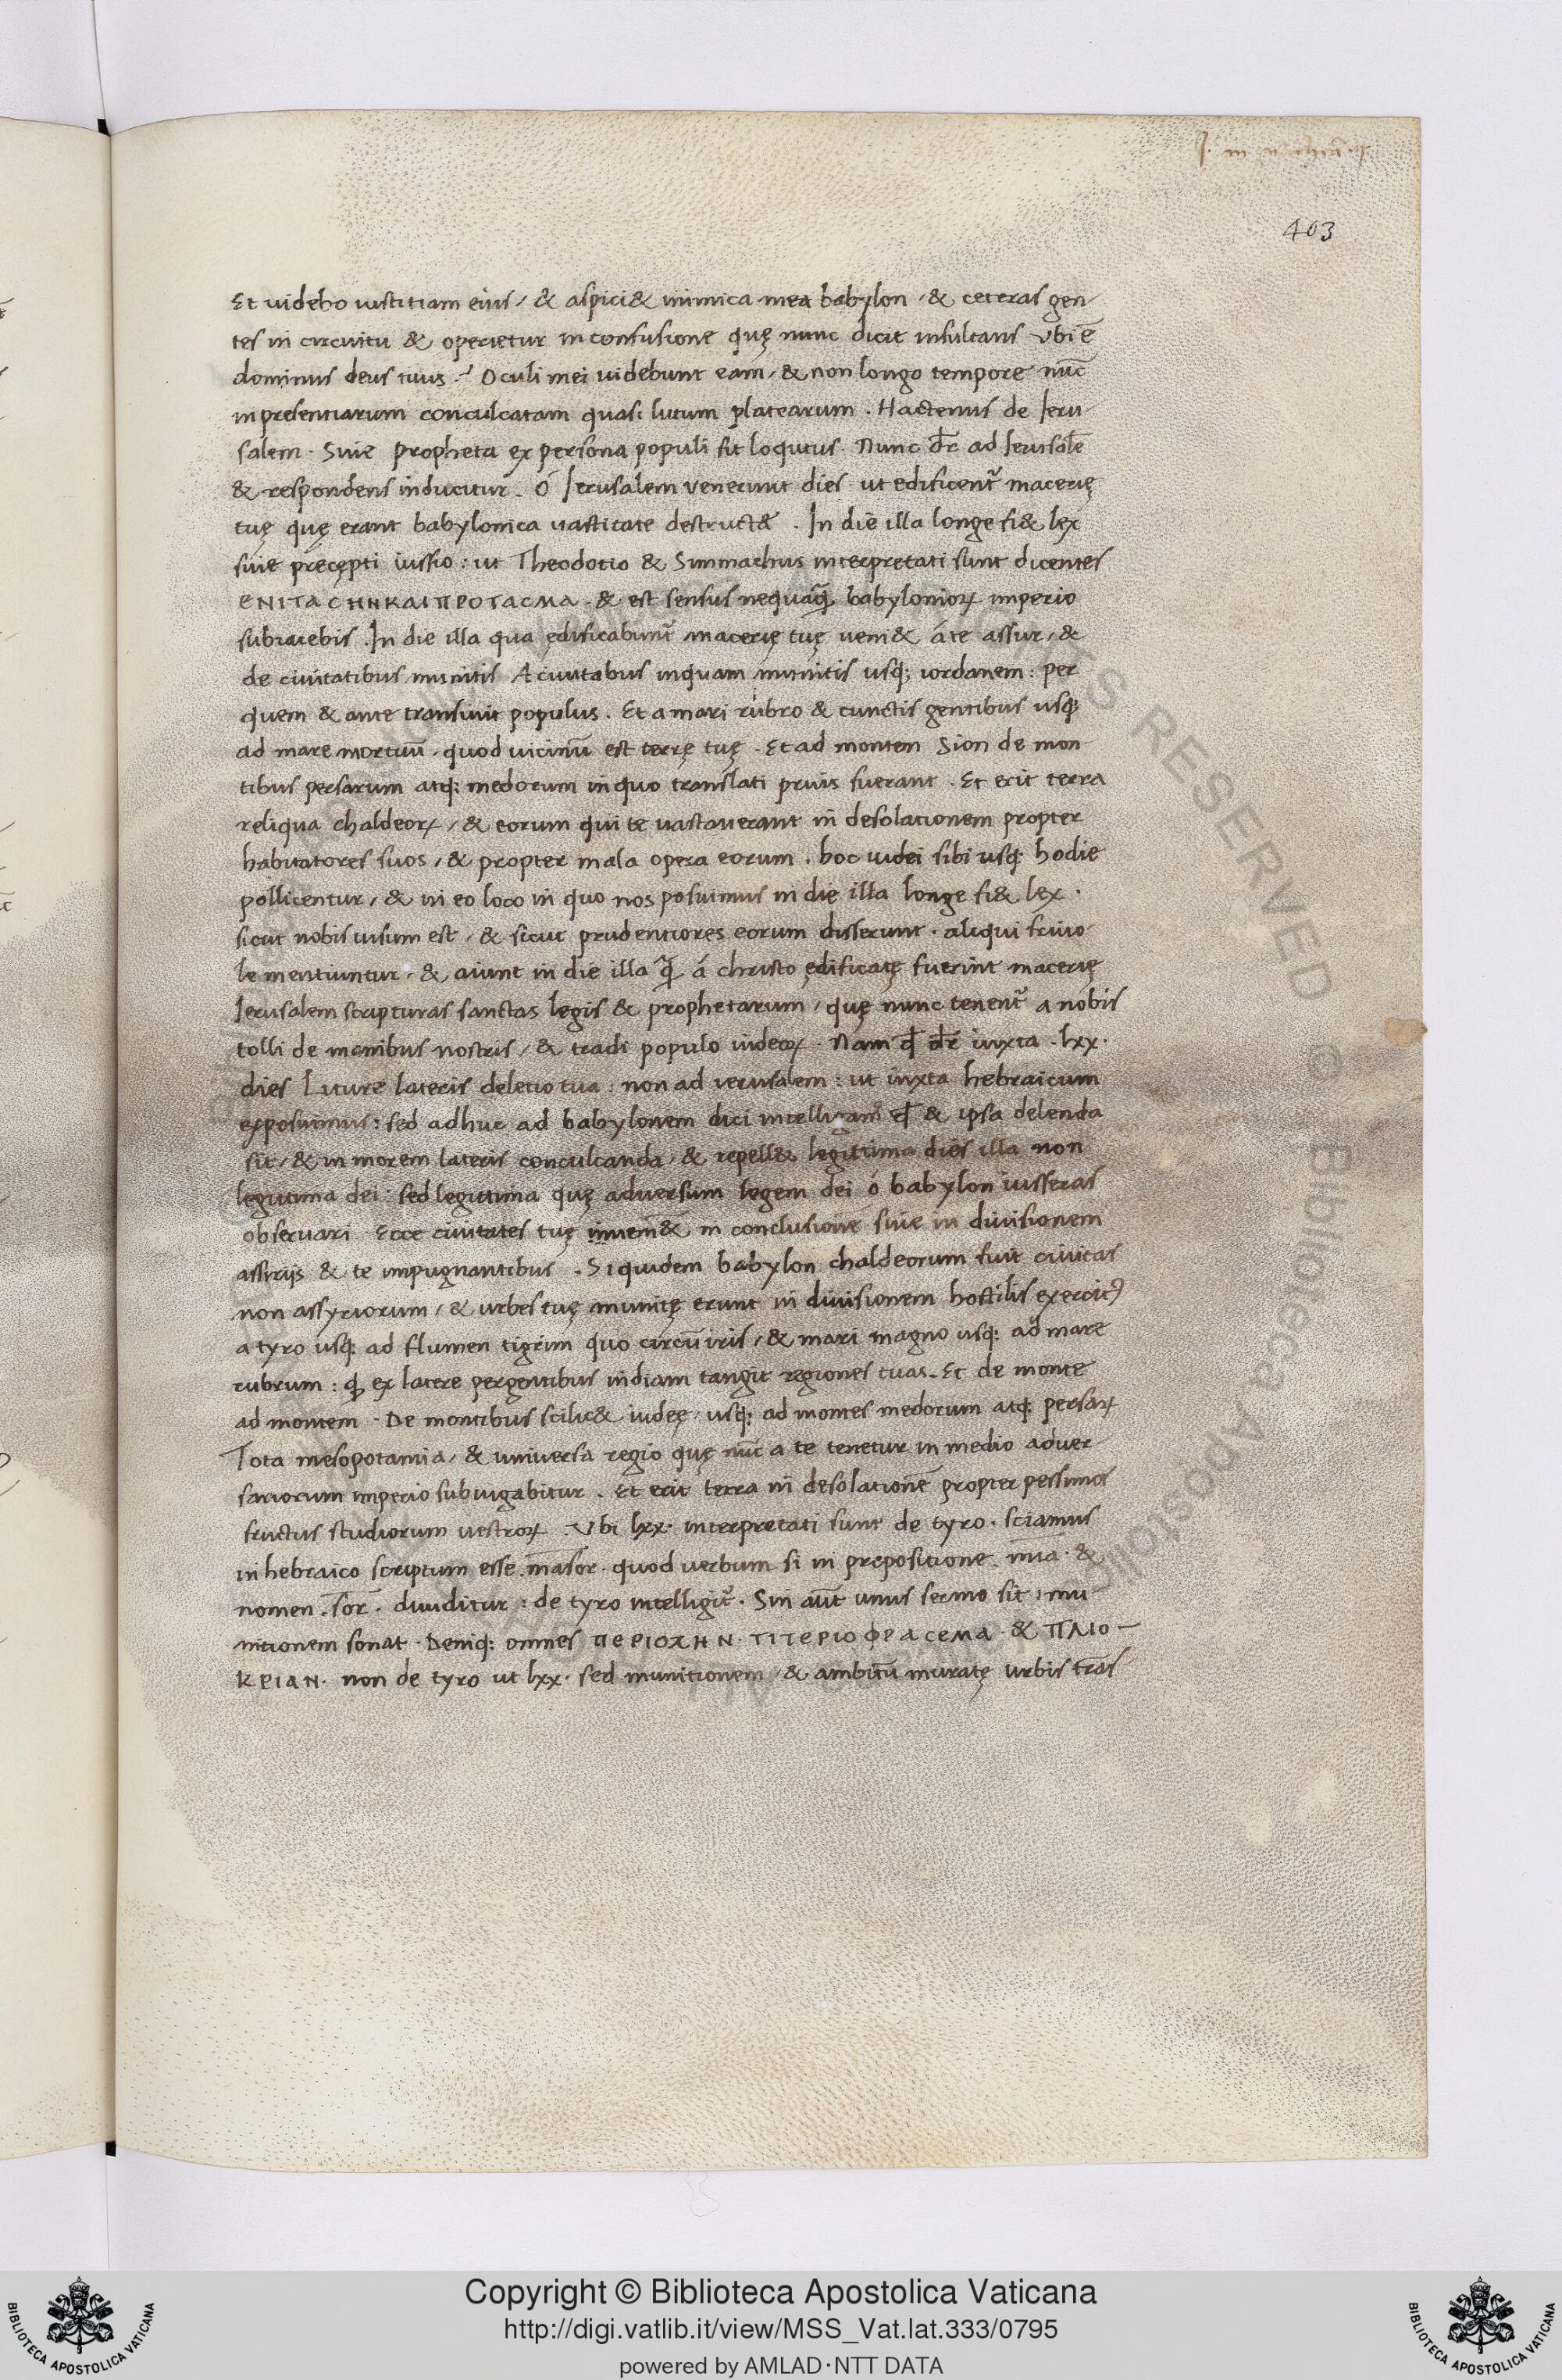 403
Et videbo iustitiam eius, & aspici& inimica mea babylon, & ceteras gen-
tes in circuitu & operietur in confusione quę nunc dicit insultans vbi ē
dominus deus tuus? Oculi mei videbunt eam, & non longo tempore nūc
inpresentiarum conculcatam quasi lutum platearum. Hactenus de Ieru-
salem. Siue propheta ex persona populi sit loqutus. Nunc dr̄ ad Ierusalē
& respondens inducitur. ó Ierusalem venerunt dies ut edificent᷑ macerię
tuę quę erant babylonica vastitate destructæ. In die illa longe fi& lex
siue precępti iussio: ut Theodotio & Simmachus interpretati sunt dicentes
ЄΠΙΤΑСΗΗΚΑΙΠΡΟΤΑСΜΑ. & est sensus nequaq̄ babylonioꝝ imperio
subiacebis. In die illa qua ędificabunt᷑ macerię tuę veni& á te assur, &
de ciuitatibus munitis A ciuitabus inquam munitis usq; iordanem: per
quem & ante transiuit populus. Et a mari rubro & cunctis gentibus usq;
ad mare mortuū, quod vicinū est terrę tuę. Et ad montem Sion de mon
tibus persarum atq; medorum in quo translati prius fuerant. Et erit terra
reliqua chaldeoꝝ, & eorum qui te vastauerant in desolationem propter
habitatores suos, & propter mala opera eorum. hoc iudei sibi usq; hodie
pollicentur, & in eo loco in quo nos posuimus in die illa longe fi& lex.
sicut nobis uisum est, & sicut prudentiores eorum disserunt. aliqui friuo-
le mentiuntur. & aiunt in die illa q̄ á christo ędificatę fuerint macerię
Ierusalem scripturas sanctas legis & prophetarum, quę nunc tenent᷑ a nobis
tolli de manibus nostris, & tradi populo iudeoꝝ. Nam qd̄ dr̄ iuxta .lxx.
dies Liture lateris deletio tua: non ad ierusalem: ut iuxta hebraicum
exposuimus: sed adhuc ad babylonem dici intelligam᷒ qd̄ & ipsa delenda
sit, & in morem lateris conculcanda, & repell& legittima dies illa non
legitima dei: sed legittima quę adversum legem dei ó babylon iusseras
obseruari Ecce ciuitates tuę inueni& in conclusionē siue in diuisionem
assirijs & te impugnantibus. Siquidem babylon chaldeorum fuit ciuitas
non assyriorum, & urbes tuę munitę erunt in diuisionem hostilis exercitꝰ
a tyro usq; ad flumen tigrim quo circūiris, & mari magno usq; ad mare
rubrum: qd̄ ex latere pergentibus indiam tangit regiones tuas. Et de monte
ad montem. De montibus scilic& iudeę, usq; ad montes medorum atq; persaꝝ
Tota mesopotamia, & universa regio quę nūc a te tenetur in medio adver-
sariorum imperio subiugabitur. Et erit terra in desolationē propter pessimos
fructus studiorum vestroꝝ. Vbi lxx. interpretati sunt de tyro. sciamus
in hebraico scriptum esse. māsor. quod verbum si in prepositione. mīa. &
nomen. sor̄. diuiditur: de tyro intelligit᷑. Sin aūt unus sermo sit: mu
nitionem sonat. Deniq; omnes ΠЄΡΙΟΧΗΝ. ΤΙΤЄΡΙΟΦΡΑСЄΜΑ. & ΠΛΙΟ-
ΚΡΙΑΝ. non de tyro ut lxx. sed munitionem, & ambitū muratę urbis trās